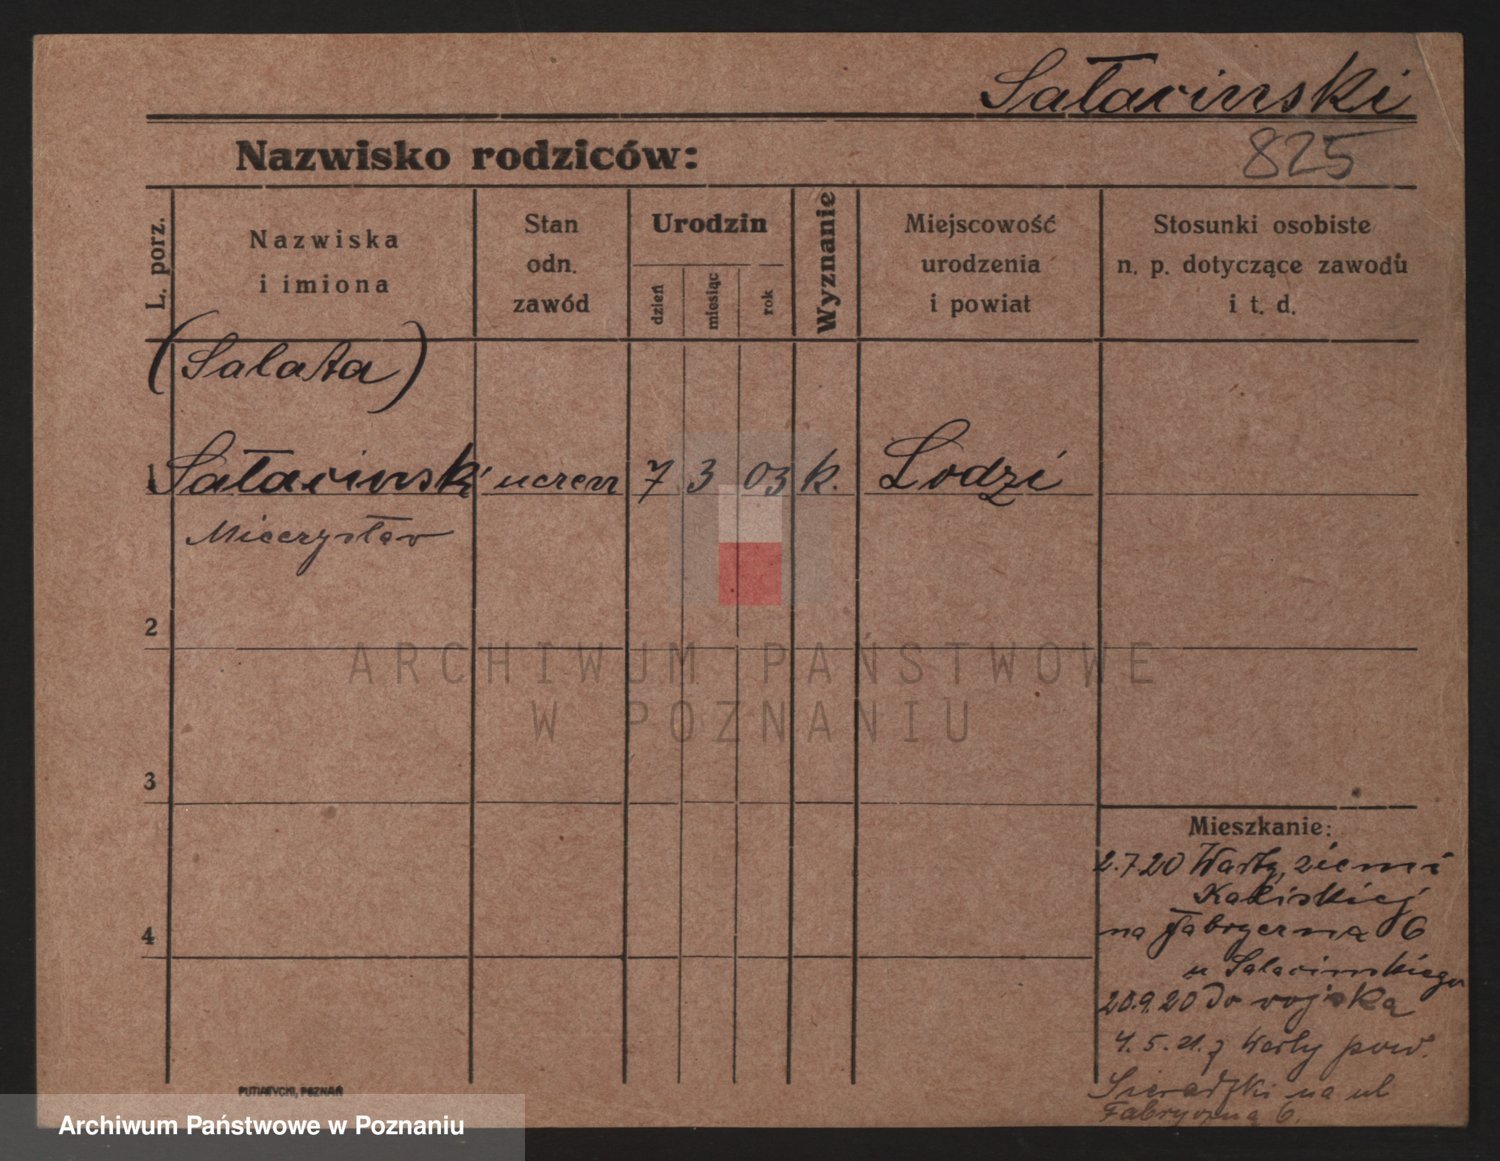 Sałacinski
825
Nazwisko rodziców:
L. porz.
Nazwiska
i imiona
Stan
odn.
zawód
Urodzin
dzień
miesiąc
rok
Wyznanie
Miejscowość
urodzenia
i powiat
Stosunki osobiste
n. p. dotyczące zawodu
i t. d.
(Salata)
1 Sałacinski uczen 7 3 03 k. Lodzi
Mieczysław
2
ARCHIWUM PAŃSTWOWE
W POZNANIU
3
Mieszkanie:
2.7.20 Warty, ziemi
Kaliskiej
4
na Fabryczna 6
u Salacinskiego
20.9.20 do wojska
4.5.21. z Warty pow.
Sieradzki na ul
Fabryczną 6.
PUTIATYCKI, POZNAŃ
Archiwum Państwowe w Poznaniu